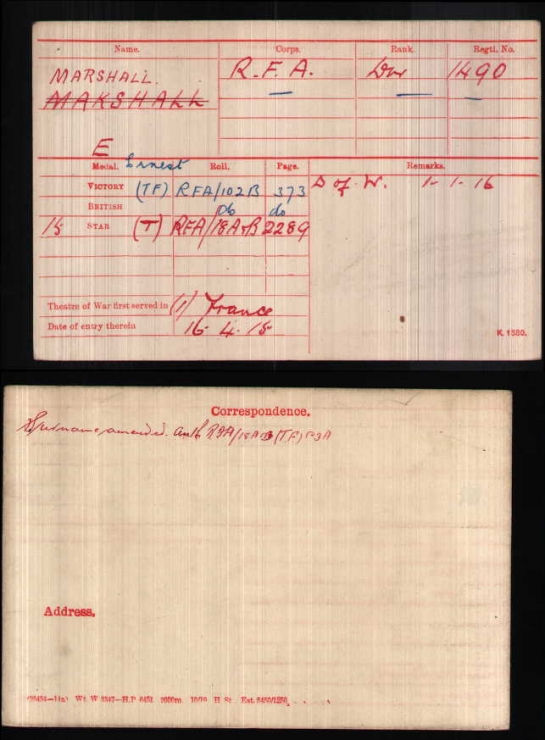 Name. Corps. Rank. Regtl. No.
MARSHALL. R.F.A. Dvr 1490
MAKSHALL
E
Ernest
Medal. Roll. Page. Remarks.
VICTORY (TF) RFA/102B 373 D of. W. 1-1-16
BRITISH do do
15 STAR (T) RFA/18A+B 2289
Theatre of War first served in (1) France
Date of entry therein 16. 4. 15
K 1380.
Correspondence.
Surname amended. Auth RFA/18A
Address.
Wt. W 5347—H.P.